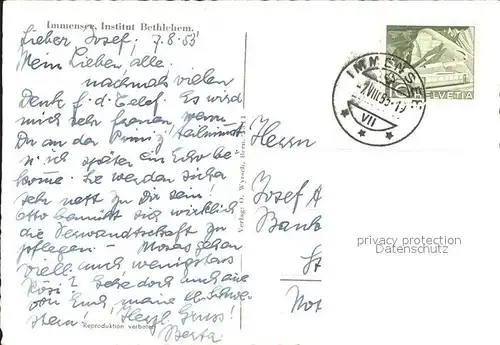 Immensee, Institut Bethlehem.
Lieber Josef, 7.8.55
Mein Lieben alle.
nachmals vielen
Dank f. d. Telef. Es wird
mich sehr freuen, wenn
Du an der Primiz teilnimmst
u. ich später ein Echo be-
komme. Sie werden sicher
sehr nett zu dir sein!
Otto bemüht sich wirklich
die Verwandtschaft zu
pflegen –
viell. auch wenigstens
Rösi? doch auch
von Euch, meine
Herzl. Gruss!
Reproduktion verboten
Berta
Verlag: O. Wyrsch, Bern
IMMENSEE
VIII 55-19
VII
HELVETIA
Herrn
Josef A
Bank
St
privacy protection
Datenschutz